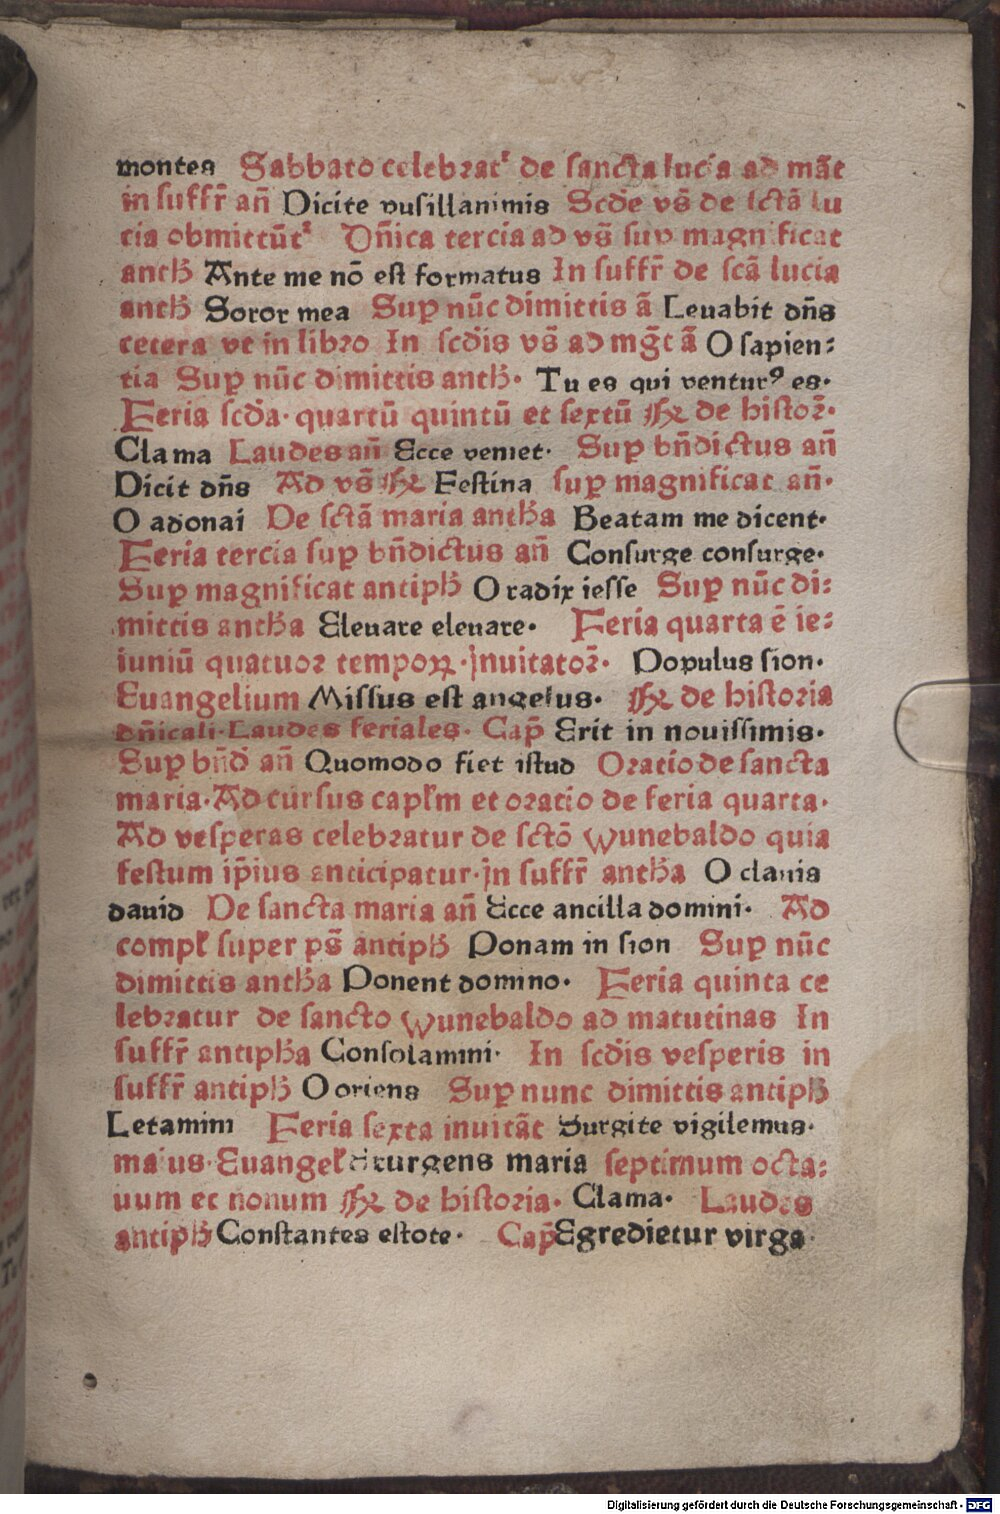 montes Sabbato celebrat᷑ de sancta lucia ad mat̄
in suffr̄ an̄ Dicite pusillanimis Scd̄e vs̄ de sctā lu
cia obmittūt᷑ Dn̄ica tercia ad vs̄ sup magnificat
anth̄ Ante me nō est formatus In suffr̄ de scā lucia
anth̄ Soror mea Sup̱ nūc dimittis ā Leuabit dn̄s
cetera vt in libro In scd̄is vs̄ ad mḡt ā O sapien:
tia Sup̱ nūc dimittis anth̄· Tu es qui venturꝰ es·
Feria scd̄a· quartū quintū et sextū ℟ de histor̄·
Clama Laudes an̄ Ecce veniet· Sup̱ bn̄dictus an̄
Dicit dn̄s Ad vs̄ ℟ Festina sup̱ magnificat an̄·
O adonai De sctā maria anth̄a Beatam me dicent·
Feria tercia sup̱ bn̄dictus an̄ Consurge consurge·
Sup̱ magnificat antiph̄ O radix iesse Sup̱ nūc di:
mittis anth̄a Eleuare eleuare· Feria quarta ē ie:
iuniū quatuor tempoꝝ·Jnuitator̄· Populus sion·
Euangelium Missus est angelus· ℟ de historia
dn̄icali·Laudes feriales· Cap̄ Erit in nouissimis·
Sup̱ bn̄d̄ an̄ Quomodo fiet istud Oratio de sancta
maria·Ad cursus capl̄m et oratio de feria quarta·
Ad vesperas celebratur de sctō wunebaldo quia
festum ip̄ius anticipatur·Jn suffr̄ anth̄a O clauis
dauid De sancta maria an̄ Ecce ancilla domini· Ad
compl̄ super ps̄ antiph̄ Ponam in sion Sup̱ nūc
dimittis anth̄a Ponent domino· Feria quinta ce
lebratur de sancto wunebaldo ad matutinas In
suffr̄ antiph̄a Consolamini· In scd̄is vesperis in
suffr̄ antiph̄ O oriens Sup̱ nunc dimittis antiph̄
Letamini Feria sexta inuitāt Surgite vigilemus·
maius·Euangel̄ Exurgens maria septimum octa:
uum et nonum ℟ de historia· Clama· Laudes
antiph̄ Constantes estote· Cap̄ Egredietur virga·
Digitalisierung gefördert durch die Deutsche Forschungsgemeinschaft - DFG